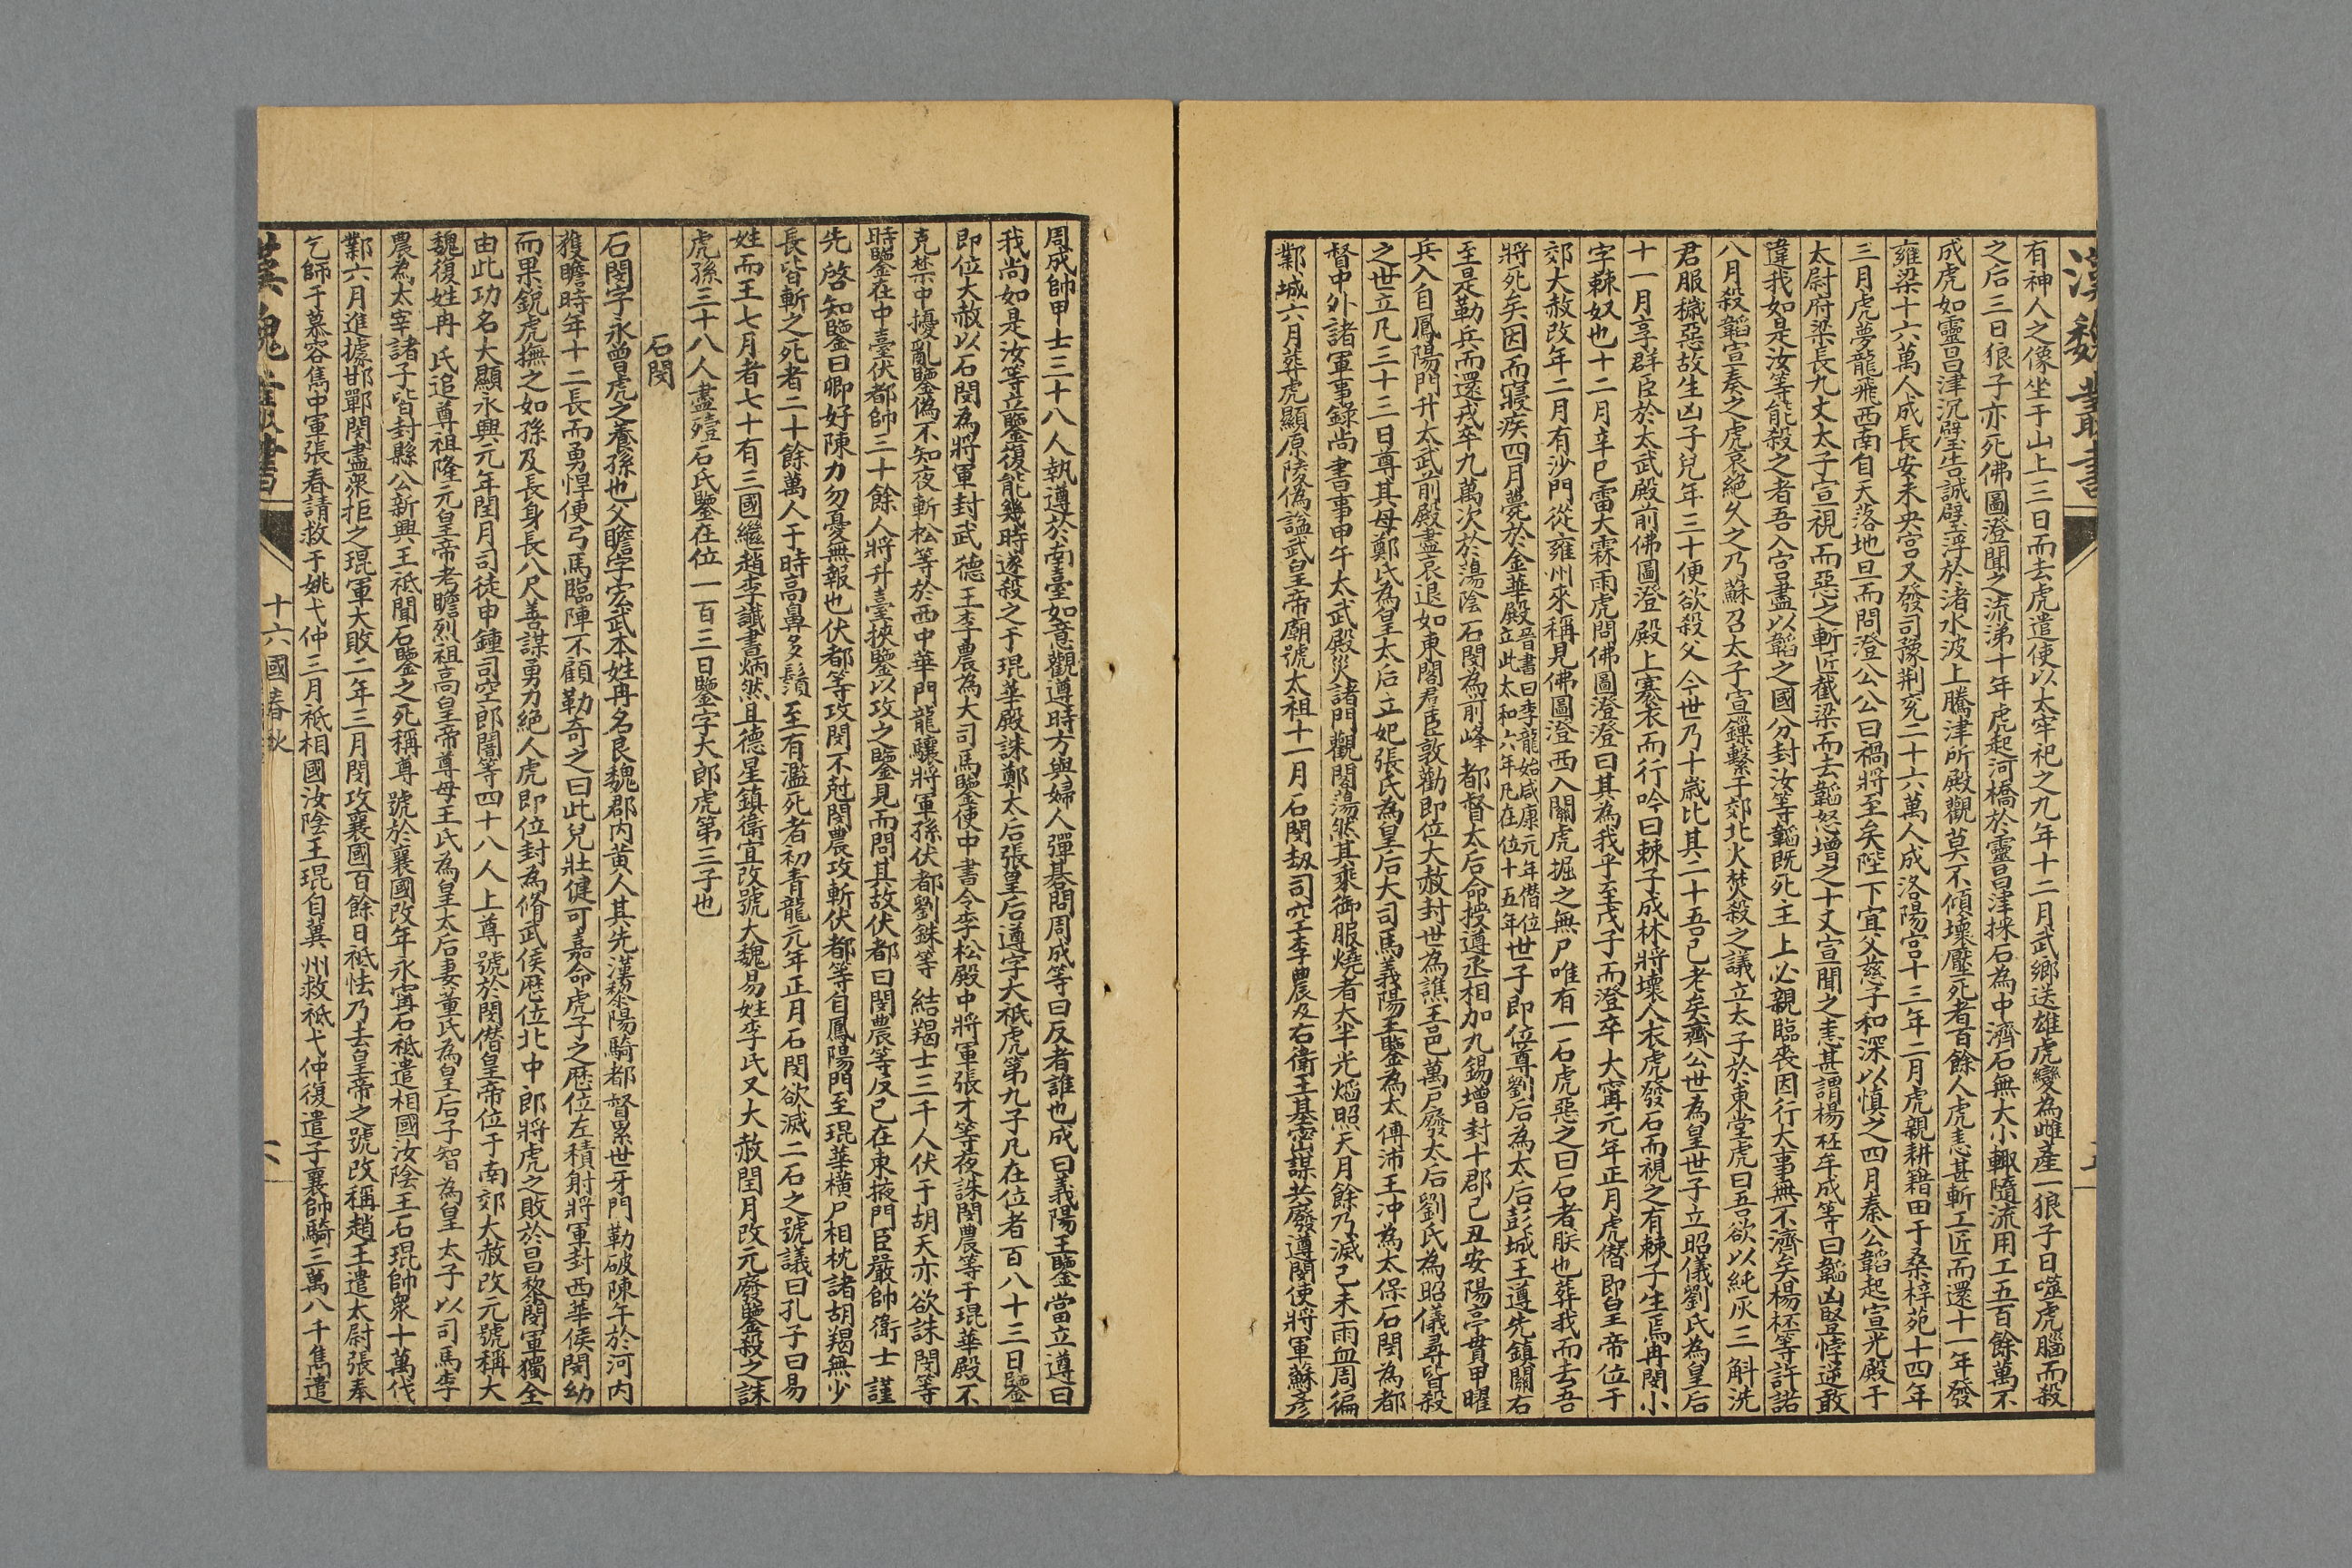 漢魏叢書
有神人之像坐于山上三日而去虎遣使以太牢祀之九年十二月武鄉送雄虎變為雌產一狼子日噬虎腦而殺
之后三日狼子亦死佛圖澄聞之流涕十年虎起河橋於靈昌津採石為中濟石無大小輒隨流用工五百餘萬不
成虎如靈昌津沉璧告誠璧浮於渚水波上騰津所殿觀莫不傾壞壓死者百餘人虎恚甚斬工匠而還十一年發
雍梁十六萬人成長安未央宮又發司豫荆兖二十六萬人成洛陽宮十三年二月虎親耕籍田于桑梓苑十四年
三月虎夢龍飛西南自天落地旦而問澄公公曰禍將至矣陛下宜父慈子和深以慎之四月秦公韜起宣光殿于
太尉府梁長九丈太子宣視而惡之斬匠截梁而去韜怒增之十丈宣聞之恚甚謂楊柸牟成等曰韜凶豎悖逆敢
違我如是汝等能殺之者吾入宮盡以韜之國分封汝等韜既死主上必親臨喪因行大事無不濟矣楊柸等許諾
八月殺韜宣奏之虎哀絕久之乃蘇召太子宣鏁繫于郊北火焚殺之議立太子於東堂虎曰吾欲以純灰三斛洗
君服穢惡故生凶子兒年三十便欲殺父今世乃十歲比其二十吾已老矣齊公世為皇世子立昭儀劉氏為皇后
十一月享群臣於太武殿前佛圖澄殿上褰衣而行吟曰棘子成林將壞人衣虎發石而視之有棘子生焉冉閔小
字棘奴也十二月辛巳雷大霖雨虎問佛圖澄澄曰其為我乎至戊子而澄卒大甯元年正月虎僭即皇帝位于
郊大赦改年二月有沙門從雍州來稱見佛圖澄西入關虎掘之無尸唯有一石虎惡之曰石者朕也葬我而去吾
將死矣因而寢疾四月薨於金華殿晉書曰季龍始咸康元年僭位立此太和六年凡在位十五年世子即位尊劉后為太后彭城王遵先鎮關右
至是勒兵而還戎卒九萬次於蕩陰石閔為前峰都督太后命授遵丞相加九錫增封十郡己丑安陽亭貫甲曜
兵入自鳳陽門升太武前殿盡哀退如東閣君臣敦勸即位大赦封世為譙王邑萬戶廢太后劉氏為昭儀尋皆殺
之世立凡三十三日尊其母鄭氏為皇太后立妃張氏為皇后大司馬義陽王鑒為太傅沛王沖為太保石閔為都
督中外諸軍事錄尚書事甲午太武殿災諸門觀閣蕩然其乘御服燒者大半光焰照天月餘乃滅己未雨血周徧
鄴城六月葬虎顯原陵偽謚武皇帝廟號太祖十一月石閔劫司空李農及右衛王基密謀共廢遵閔使將軍蘇彥
周成帥甲士三十八人執遵於南臺如意觀遵時方與婦人彈碁問周成等曰反者誰也成曰義陽王鑒當立遵曰
我尚如是汝等立鑒復能幾時遂殺之于琨華殿誅鄭太后張皇后遵字大祇虎第九子凡在位者百八十三日鑒
即位大赦以石閔為將軍封武德王李農為大司馬鑒使中書令李松殿中將軍張才等夜誅閔農等于琨華殿不
克禁中擾亂鑒偽不知夜斬松等於西中華門龍驤將軍孫伏都劉銖等結羯士三千人伏于胡天亦欲誅閔等
時鑒在中臺伏都帥三十餘人將升臺挾鑒以攻之鑒見而問其故伏都曰閔農等反已在東掖門臣嚴帥衛士謹
先啓知鑒曰卿好陳力勿憂無報也伏都等攻閔不尅閔農攻斬伏都等自鳳陽門至琨華橫尸相枕諸胡羯無少
長皆斬之死者二十餘萬人于時高鼻多鬚至有濫死者初青龍元年正月石閔欲滅二石之號議曰孔子曰易
姓而王七月者七十有三國繼趙李讖書炳然且德星鎮衛宜改號大魏易姓李氏又大赦閏月改元廢鑒殺之誅
虎孫三十八人盡殪石氏鑒在位一百三日鑒字大郎虎第三子也
石閔
石閔字永曾虎之養孫也父瞻字宏武本姓冉名良魏郡內黃人其先漢黎陽騎都督累世牙門勒破陳午於河內
獲瞻時年十二長而勇悍便弓馬臨陣不顧勒奇之曰此兒壯健可嘉命虎子之歷位左積射將軍封西華侯閔幼
而果銳虎撫之如孫及長身長八尺善謀勇力絕人虎即位封為脩武侯歷位北中郎將虎之敗於昌黎閔軍獨全
由此功名大顯永興元年閏月司徒申鍾司空郎闓等四十八人上尊號於閔僭皇帝位于南郊大赦改元號稱大
魏復姓冉氏追尊祖隆元皇帝考瞻烈祖高皇帝尊母王氏為皇太后妻董氏為皇后子智為皇太子以司馬李
農為太宰諸子皆封縣公新興王祗聞石鑒之死稱尊號於襄國改年永甯石祗遣相國汝陰王石琨帥衆十萬伐
鄴六月進據邯鄲閔盡衆拒之琨軍大敗二年三月閔攻襄國百餘日祗怯乃去皇帝之號改稱趙王遣太尉張奉
乞師于慕容雋中軍張春請救于姚弋仲三月祗相國汝陰王琨自冀州救祗弋仲復遣子襄帥騎三萬八千雋遣
漢魏叢書
十六國春秋
六